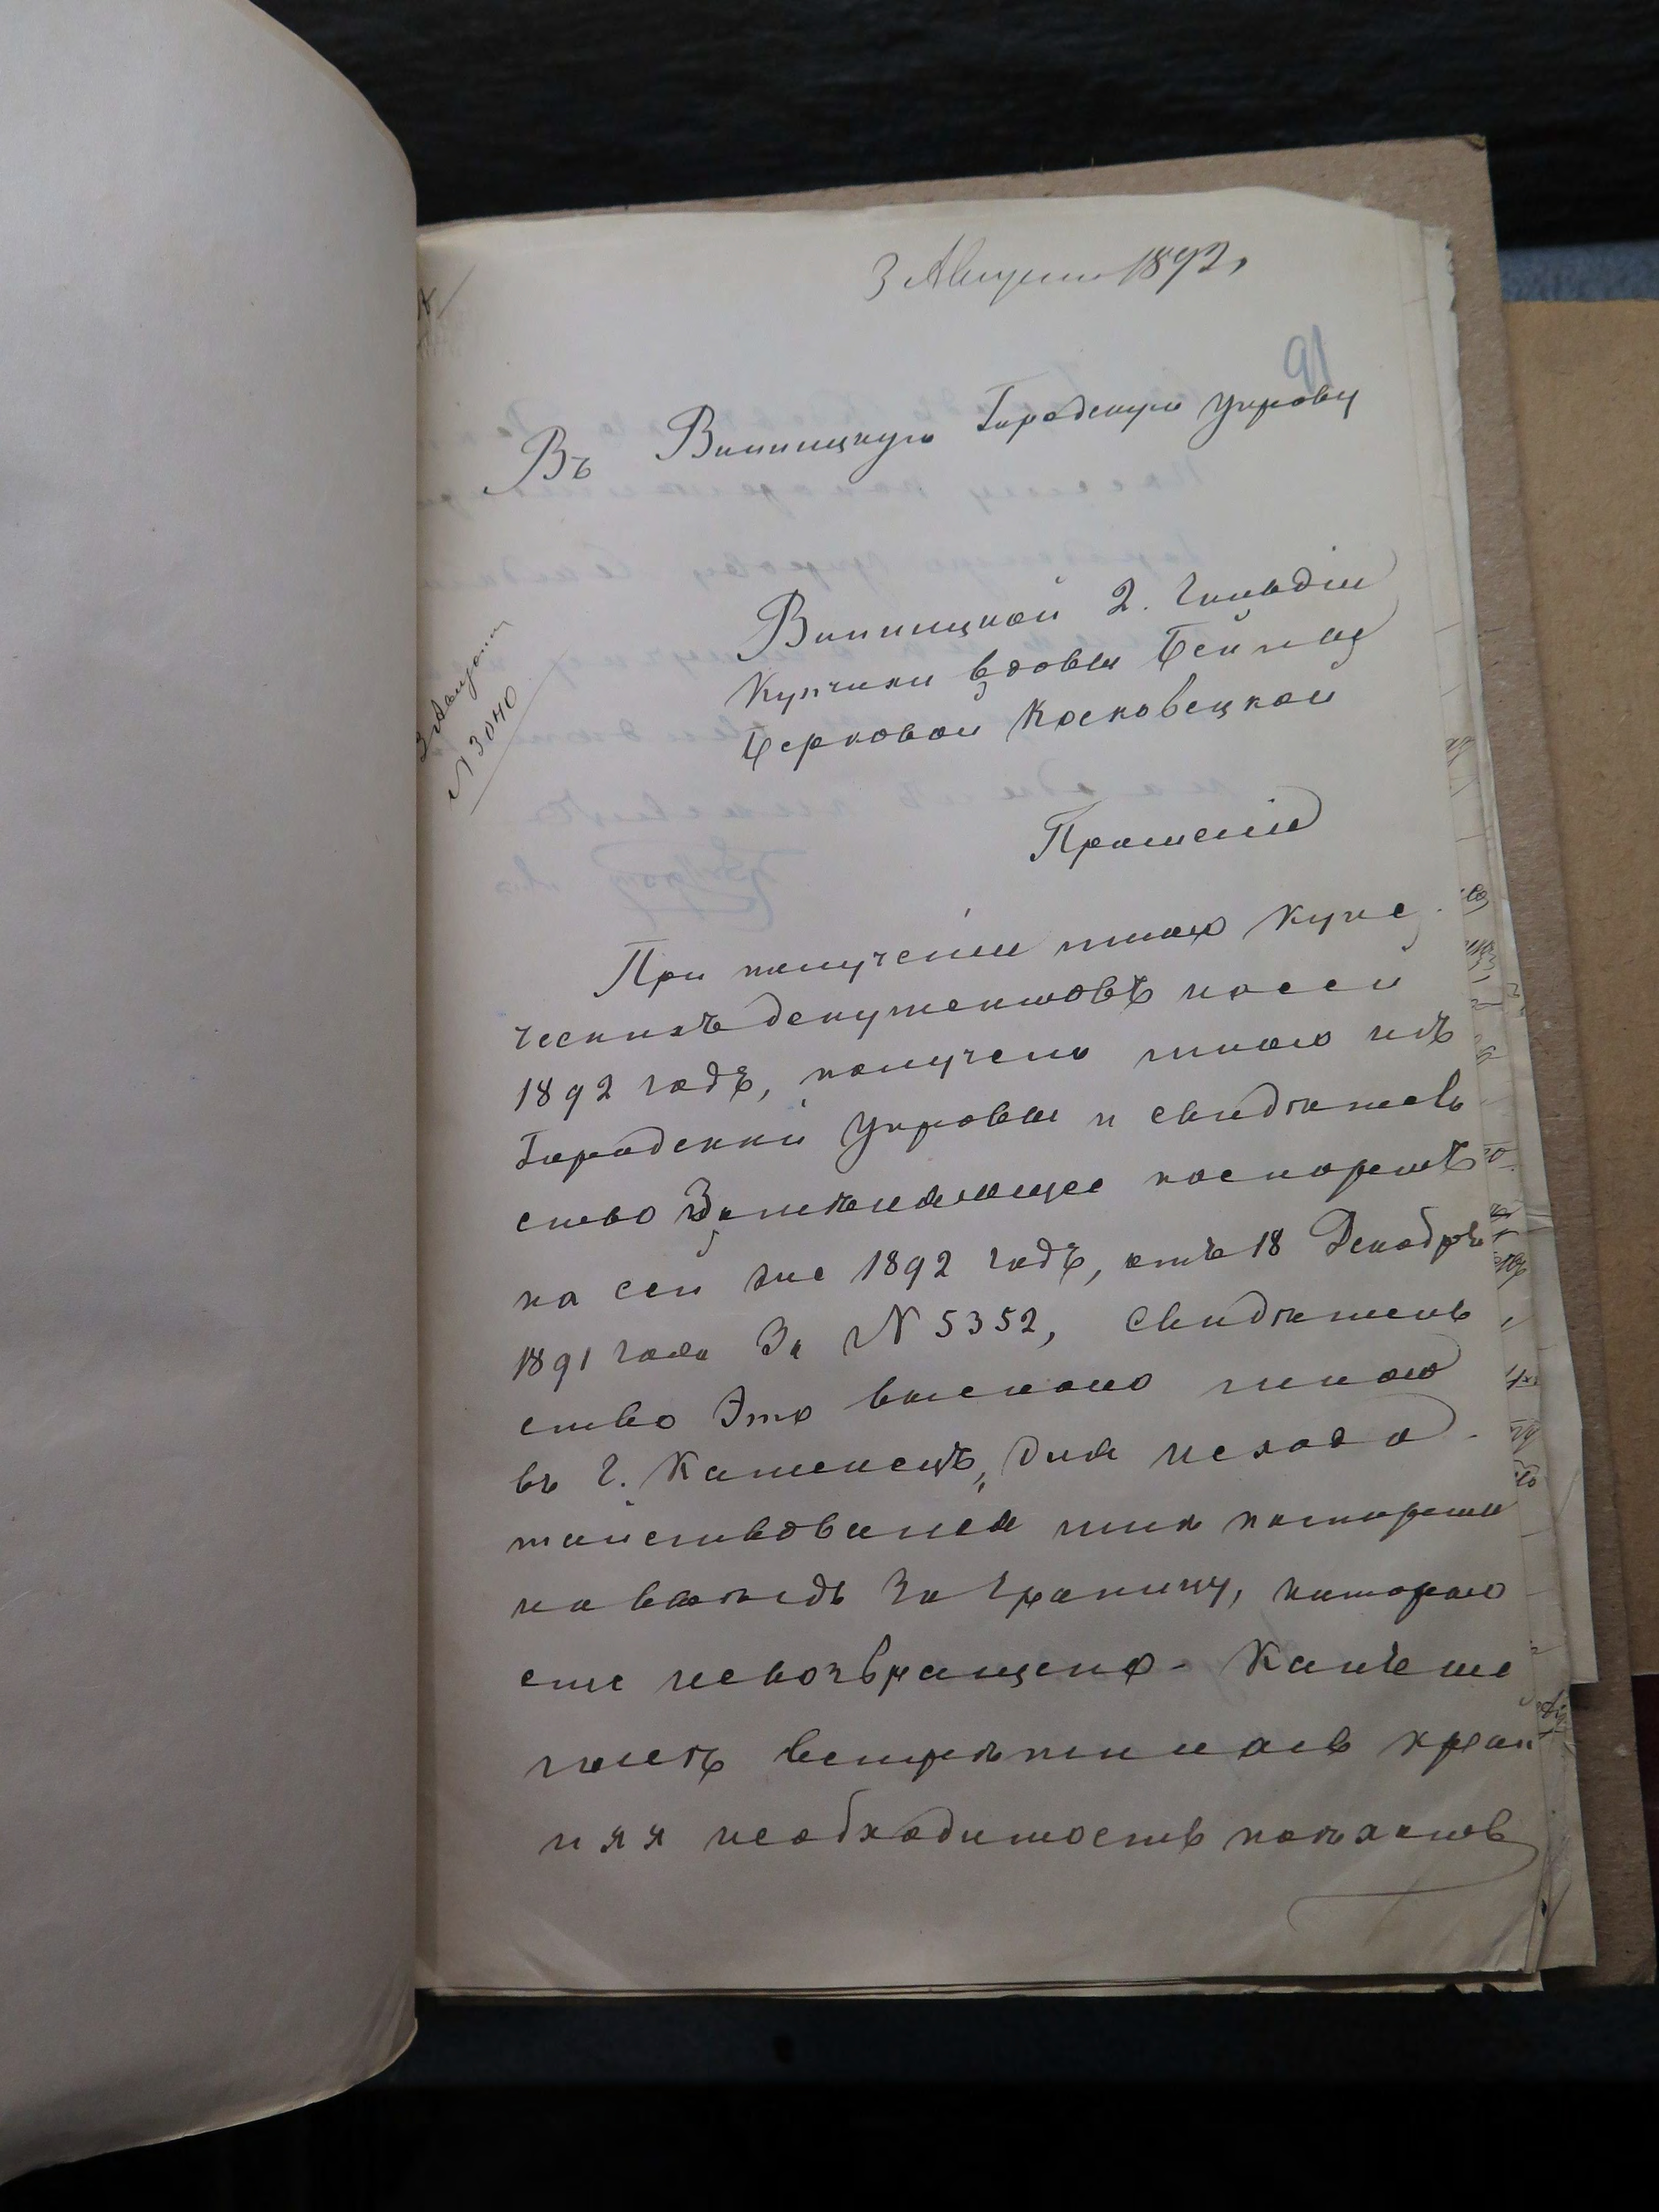 3 Августа 1892,
91
Въ Винницкую Городскую Управу
Винницкой 2. Гильдіи
Купчихи вдовы Бейлы
Берковой Косковецкой
3 Августа
N 3040
Прошеніе
При полученіи мною купе
ческихъ документовъ на сей
1892 годъ, получено мною изъ
Городской Управы и свидѣтель
ство Замѣняющее паспортъ
на сей же 1892 годъ, отъ 18 Декабря
1891 года За N 5352, Свидѣтель
ство Это выслано мною
въ г. Каменецъ, для исхода
тайствованія мнѣ паспорта
на выѣздъ За границу, которое
еще невозвращено - Нынѣ же
встрѣтилась край
няя необходимость поѣхать